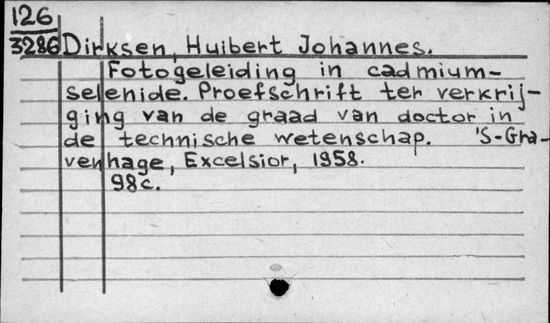 126
3286 Dirksen, Huibert Johannes.
Fotogeleiding in cadmium-
selenide. Proefschrift ter verkrij-
ging van de graad van doctor in
de technische wetenschap. 'S-Gra-
venhage, Excelsior, 1958.
98c.